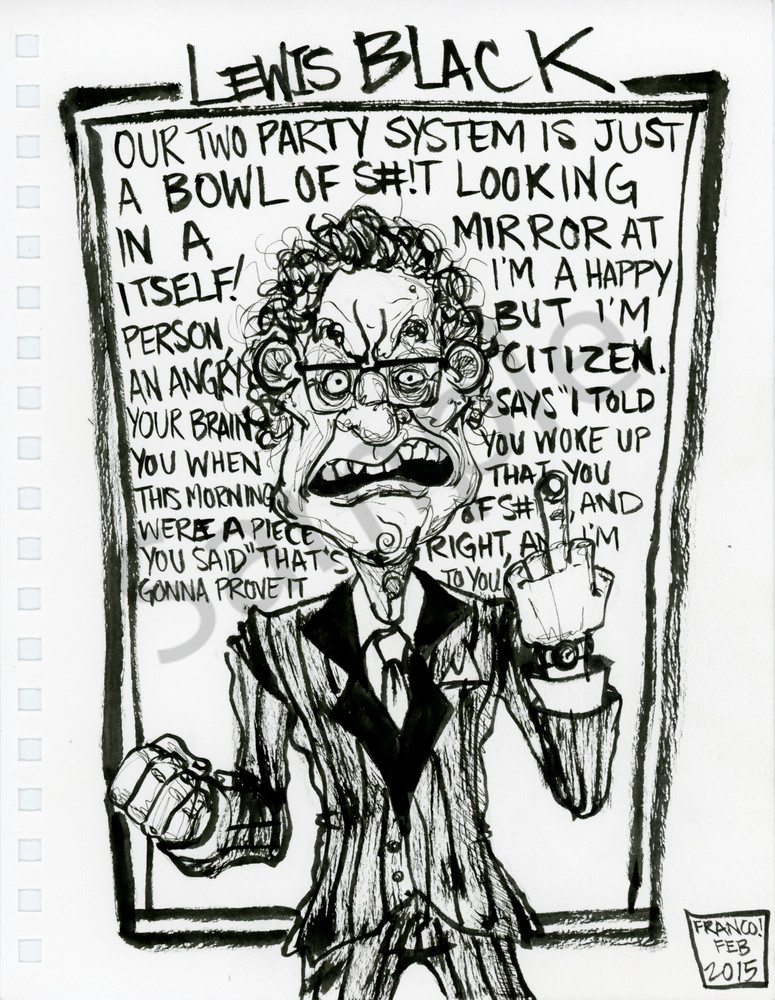 LEWIS BLACK
OUR TWO PARTY SYSTEM IS JUST
A BOWL OF S#!T LOOKING
IN A MIRROR AT
ITSELF! I'M A HAPPY
PERSON, BUT I'M
AN ANGRY CITIZEN.
YOUR BRAIN SAYS "I TOLD
YOU WHEN YOU WOKE UP
THIS MORNING THAT YOU
WERE A PIECE OF S# , AND
YOU SAID "THAT'S RIGHT, AND I'M
GONNA PROVE IT TO YOU
Sample
FRANCO!
FEB
2015